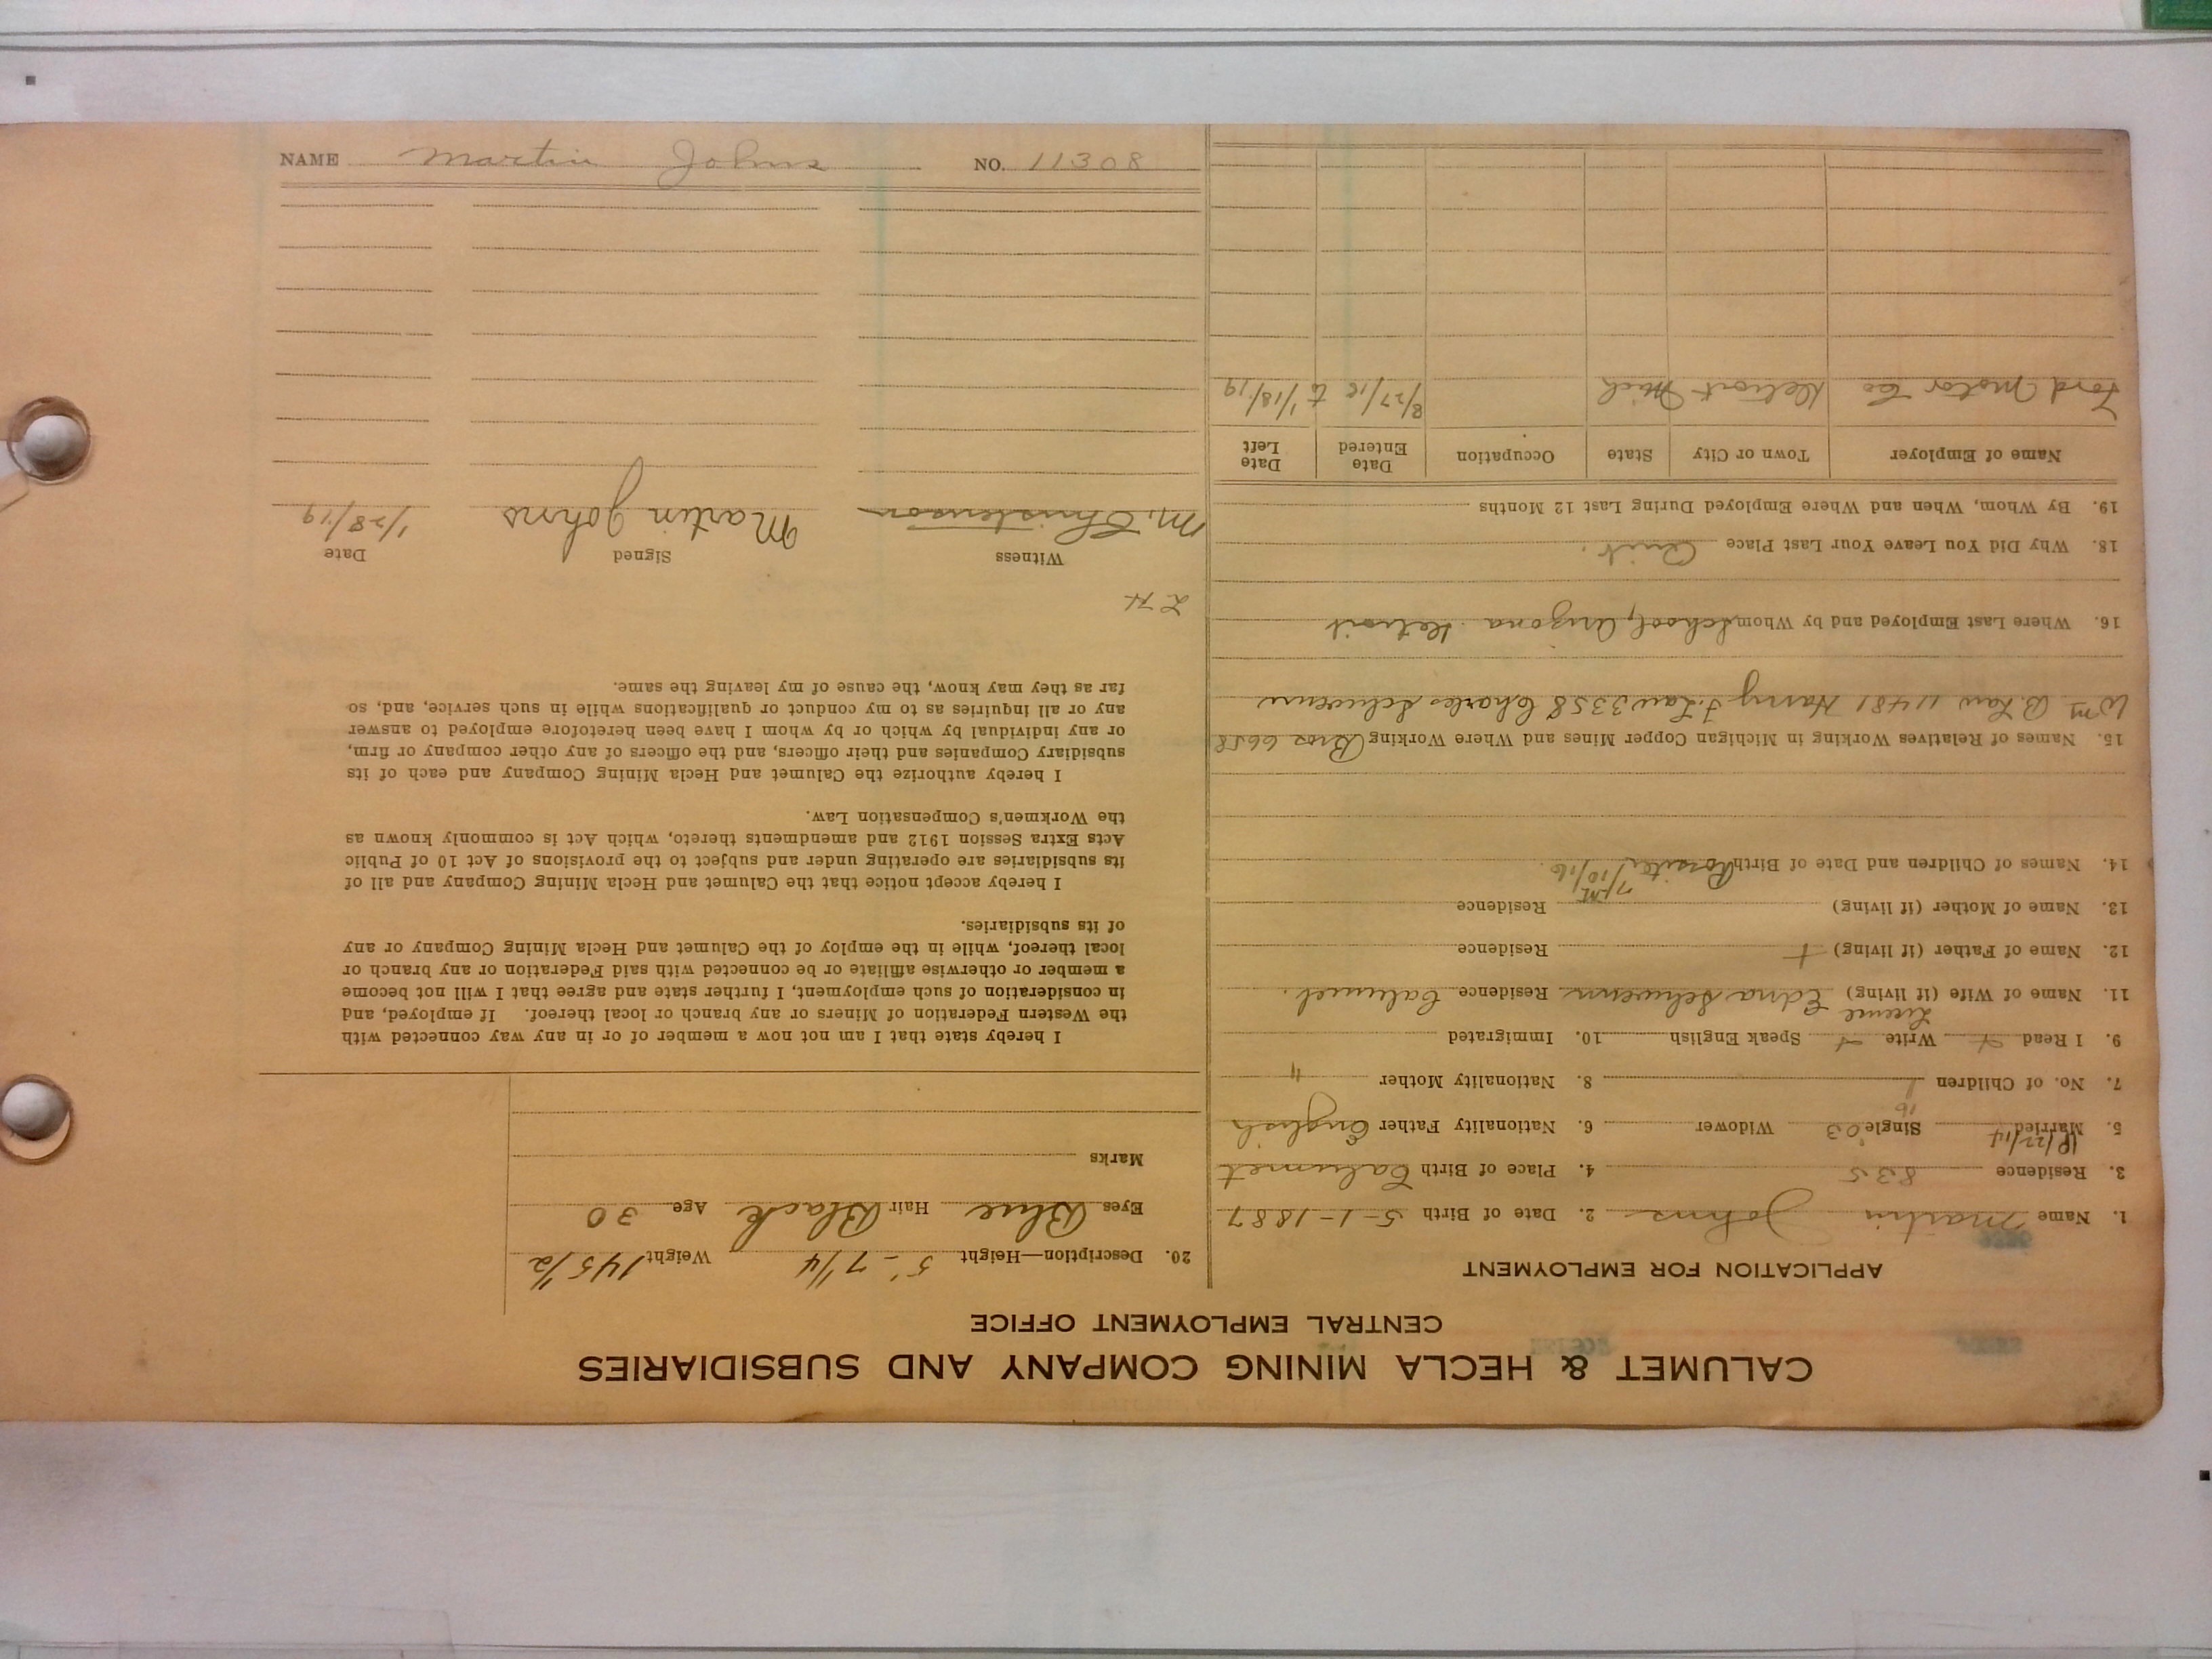 CALUMET & HECLA MINING COMPANY AND SUBSIDIARIES
CENTRAL EMPLOYMENT OFFICE
APPLICATION FOR EMPLOYMENT
1. Name Martin Johns 2. Date of Birth 5-1-1887
3. Residence 835 4. Place of Birth Calumet
5. Married Single Widower 6. Nationality Father English
7. No. of Children 1 8. Nationality Mother "
9. I Read Write Speak English 10. Immigrated
11. Name of Wife (if living) Edna Schwenn Residence Calumet.
12. Name of Father (if living) Residence
13. Name of Mother (if living) Residence
14. Names of Children and Date of Birth 7/10/16
15. Names of Relatives Working in Michigan Copper Mines and Where Working Bros 6658
Wm B. Law 11481 Harry J. Law 3358 Charles Schwenn
16. Where Last Employed and by Whom School, Arizona Detroit
18. Why Did You Leave Your Last Place Quit.
19. By Whom, When and Where Employed During Last 12 Months
Name of Employer Town or City State Occupation Date Entered Date Left
Ford Motor Co Detroit Mich 8/27/18 to 1/18/19
20. Description—Height 5'-7 1/4 Weight 145 1/2
Eyes Blue Hair Black Age 30
Marks
I hereby state that I am not now a member of or in any way connected with
the Western Federation of Miners or any branch or local thereof. If employed, and
in consideration of such employment, I further state and agree that I will not become
a member or otherwise affiliate or be connected with said Federation or any branch or
local thereof, while in the employ of the Calumet and Hecla Mining Company or any
of its subsidiaries.
I hereby accept notice that the Calumet and Hecla Mining Company and all of
its subsidiaries are operating under and subject to the provisions of Act 10 of Public
Acts Extra Session 1912 and amendments thereto, which Act is commonly known as
the Workmen's Compensation Law.
I hereby authorize the Calumet and Hecla Mining Company and each of its
subsidiary Companies and their officers, and the officers of any other company or firm,
or any individual by which or by whom I have been heretofore employed to answer
any or all inquiries as to my conduct or qualifications while in such service, and, so
far as they may know, the cause of my leaving the same.
Witness Signed Date
M. Christenson Martin Johns 1/28/19
NAME Martin Johns NO. 11308